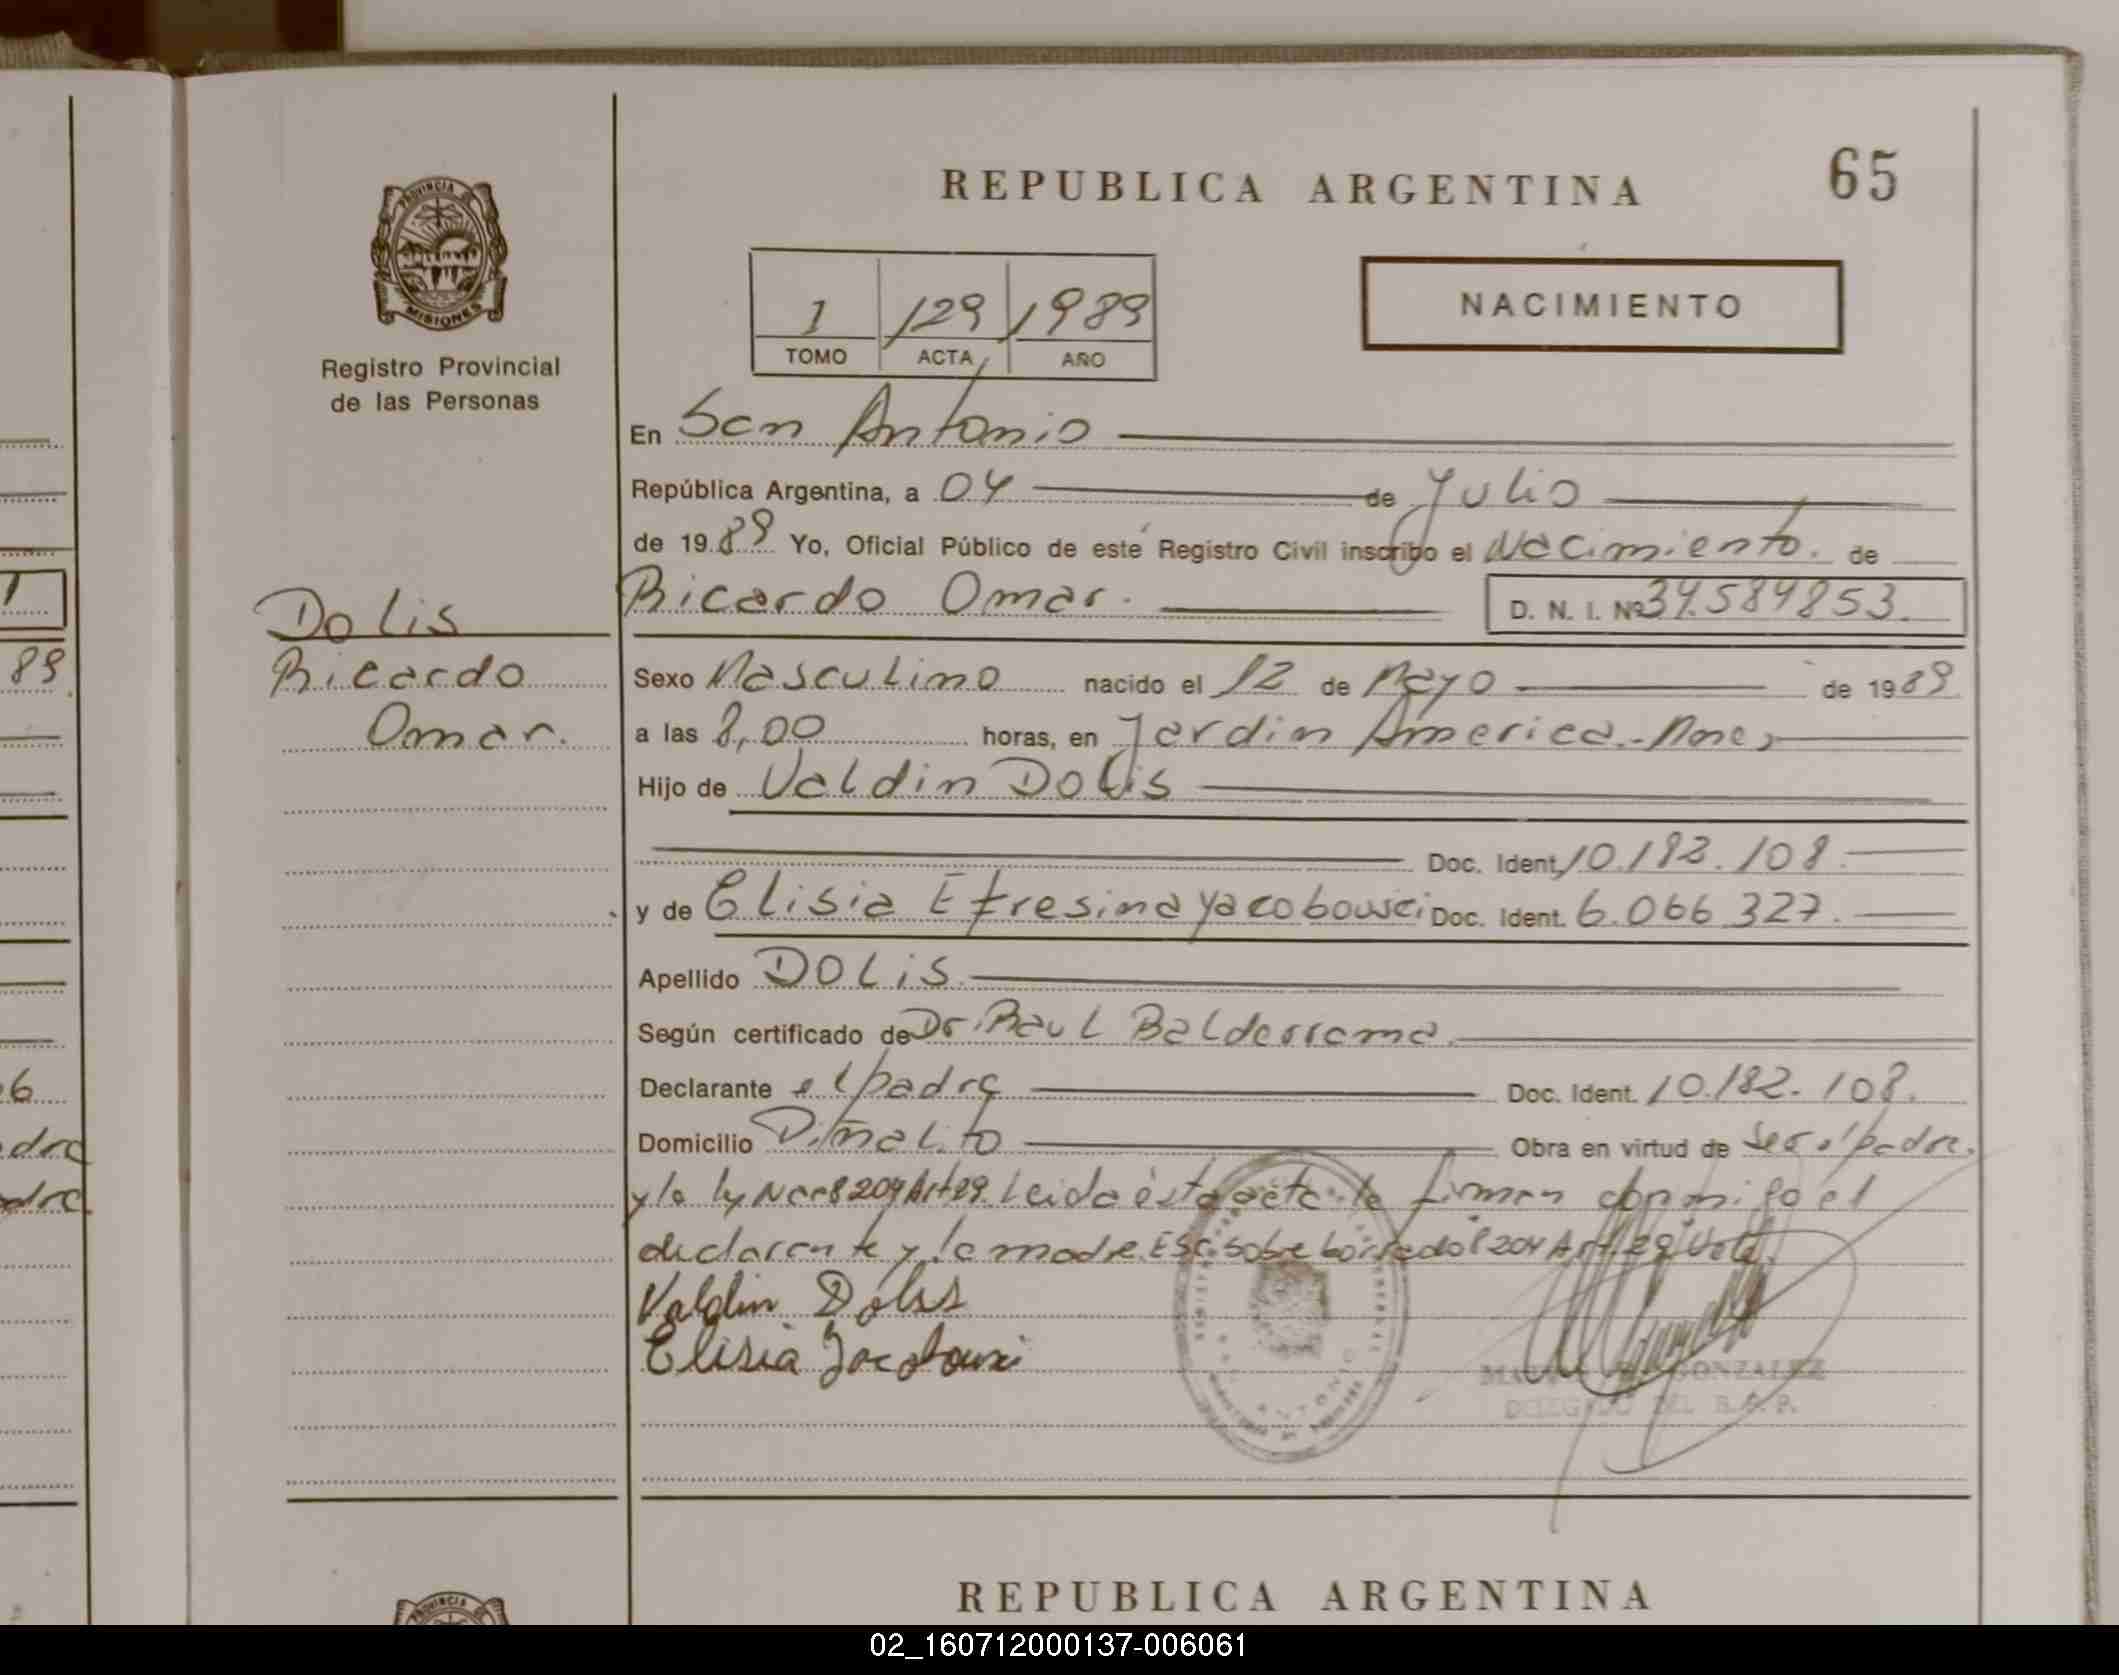 65
REPUBLICA ARGENTINA
PROVINCIA DE
MISIONES
Registro Provincial
de las Personas
NACIMIENTO
1 129 1989
TOMO ACTA AÑO
En San Antonio
República Argentina, a 04 de Julio
de 1989 Yo, Oficial Público de este Registro Civil inscribo el Nacimiento. de
Ricardo Omar. D. N. I. Nº 34.584853.
Dolis
Ricardo
Omar.
Sexo Masculino nacido el 12 de Mayo de 1989
a las 8,00 horas, en Jardin America.-Mnes
Hijo de Valdin Dolis
Doc. Ident. 10.182.108.
y de Elisia Efresina Yacobousci Doc. Ident. 6.066 327.
Apellido DOLiS
Según certificado de Dr. Raul Balderrama.
Declarante el padre Doc. Ident. 10.182.108.
Domicilio Piñalito Obra en virtud de ser el padre.
y la ley Nº 8204 Art 29. Leida ésta acta la firman conmigo el
declarante y la madre. Esc. sobre borrado 8204 Art. 29 Vale.
Valdin Dolis
Elisia
GONZALEZ
DELEGADO DEL R.
89
6
REPUBLICA ARGENTINA
PROVINCIA DE
02_160712000137-006061